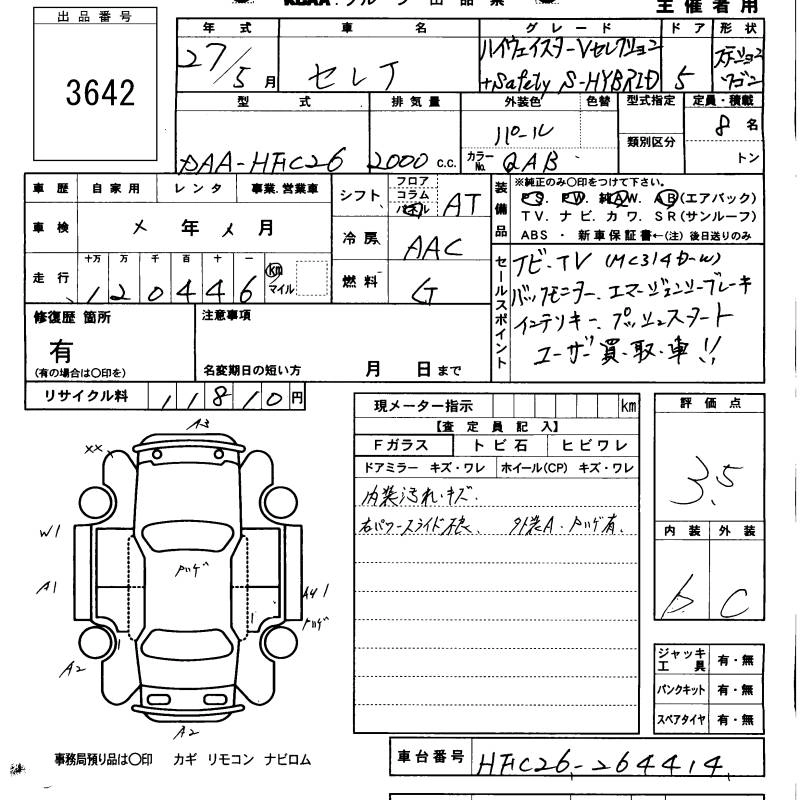 主催者用
出品番号
3642
年式 車名 グレード ドア 形状
27/5月 セレナ ハイウェイスターVセレクション
+Safety S-HYBRID 5 ステーションワゴン
型式 排気量 外装色 色替 型式指定 定員・積載
パール 8名
類別区分
DAA-HFC26 2000 c.c. カラーNo. QAB トン
車歴 自家用 レンタ 事業.営業車
車検 年 月
走行 十万 万 千 百 十 一
120446 km マイル
シフト フロア コラム パネル AT
冷房 AAC
燃料 G
装備品
※純正のみ〇印をつけて下さい。
PS. PW. 純AW. AB(エアバック)
TV. ナビ. カワ. SR(サンルーフ)
ABS ・ 新車保証書←(注) 後日送りのみ
セールスポイント
ナビ・TV (MC314D-W)
バックモニター. エマージェンシーブレーキ
インテリキー. プッシュスタート
ユーザー買.取.車!!
修復歴 箇所
有
(有の場合は〇印を)
注意事項
名変期日の短い方 月 日まで
リサイクル料 11810円
現メーター指示 km
【査定員記入】
Fガラス トビ石 ヒビワレ
ドアミラー キズ・ワレ ホイール(CP) キズ・ワレ
内装汚れ・キズ.
右パワースライド不良、 外装A・ 有.
評価点
3.5
内装 外装
b C
A3
XX
W1
A1
A2
A2
ジャッキ工具 有・無
パンクキット 有・無
スペアタイヤ 有・無
事務局預り品は〇印 カギ リモコン ナビロム
車台番号 HFC26-264414